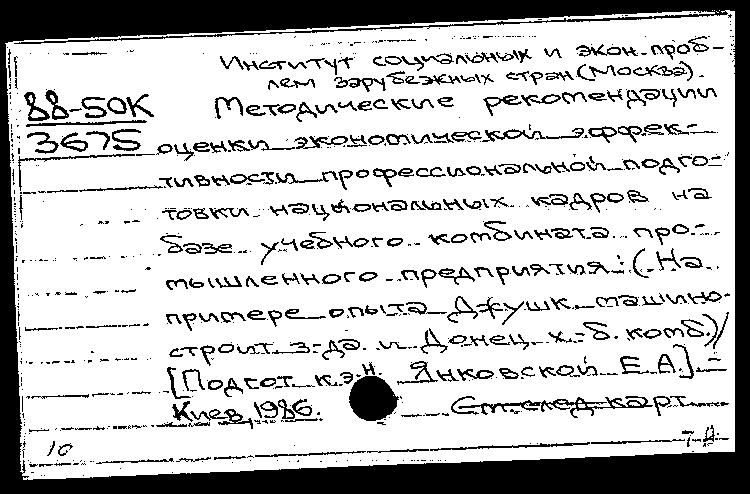 Институт социальных и экон. проб-
лем зарубежных стран (Москва).
88-50К
3675
Методические рекомендации
оценки экономической эффек-
тивности профессиональной подго-
товки национальных кадров на
базе учебного комбината про-
мышленного предприятия: (На
примере опыта Джушк. машино-
строит. з-да и Донец. х.-б. комб.)/
[Подгот. к.э.н. Янковской Е.А.] –
Киев, 1986.
См. след. карт.
10